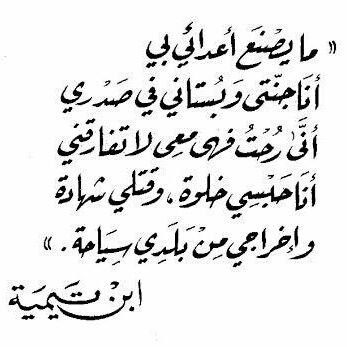 « ما يصْنَع أعدائي بي
أنَا جنّتى وَبُستاني في صَدْري
أنَّىٰ رُحْتُ فهى معِى لا تفارقني
أنَا حَبْسِي خلوة، وقتلي شهادة
وإخراجي مِنْ بَلَدِي سِيَاحة. »
ابنْ تَيمِية